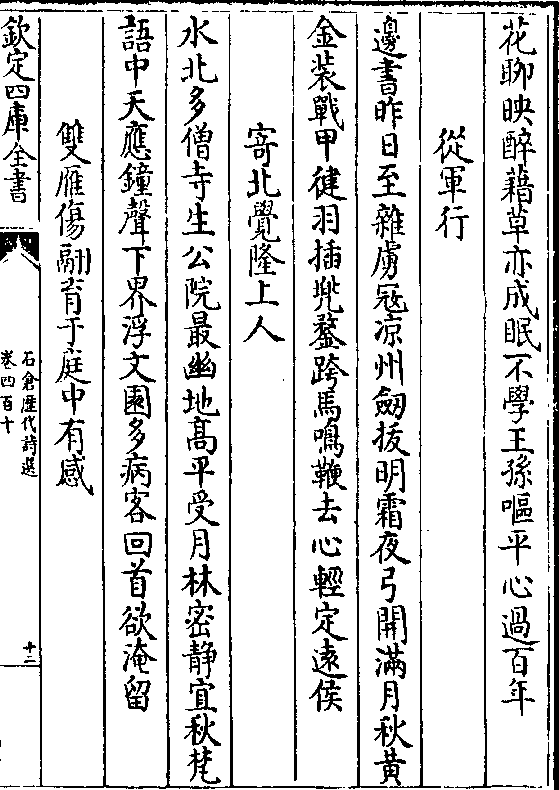 花聊映醉藉草亦成眠不學王孫嘔平心過百年
從軍行
邊書昨日至雜虜冦凉州劒拔明霜夜弓開滿月秋黄
金装戰甲健羽插兠鍪跨馬鳴鞭去心輕定逺侯
寄北覺隆上人
水北多僧寺生公院最幽地髙平受月林密静宜秋梵
語中天應鐘聲下界浮文園多病客回首欲淹留
雙雁傷翮育于庭中有感
欽定四庫全書
石倉歴代詩選
卷四百十
十二